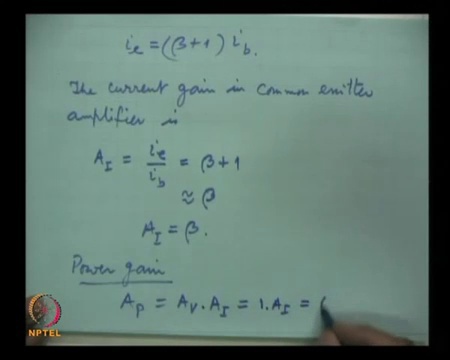 i_e = (β+1) i_b.
The current gain in common emitter
amplifier is
A_I = i_e/i_b = β+1
≈ β
A_I = β.
Power gain
A_p = A_V . A_I = 1. A_I =
NPTEL